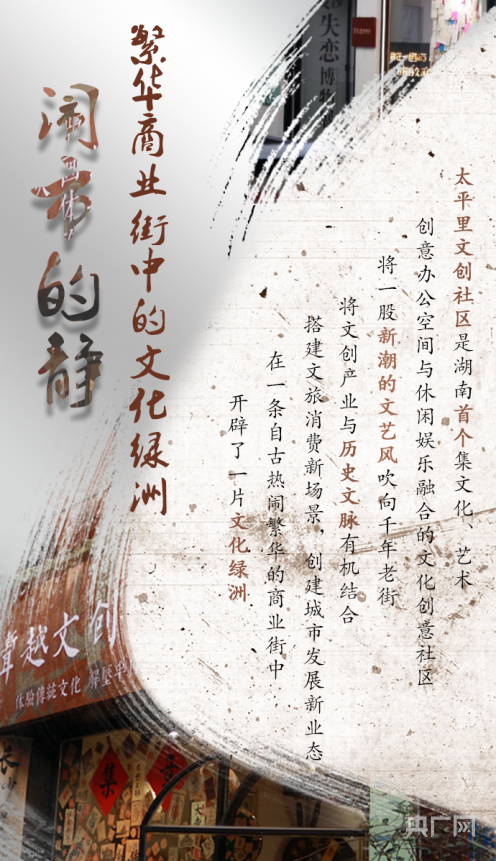 闹市的静
繁华商业街中的文化绿洲
太平里文创社区是湖南首个集文化、艺术
创意办公空间与休闲娱乐融合的文化创意社区
将一股新潮的文艺风吹向千年老街
将文创产业与历史文脉有机结合
搭建文旅消费新场景，创建城市发展新业态
在一条自古热闹繁华的商业街中
开辟了一片文化绿洲
失恋博物
越文创
体验傳統文化
央广网